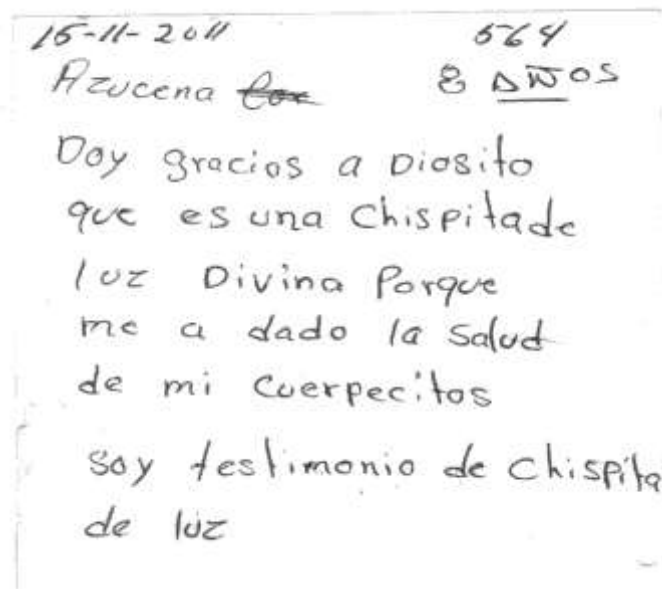 15-11-2011 564
Azucena 8 AÑOS
Doy gracios a Diosito
que es una Chispitade
luz Divina Porque
me a dado la salud
de mi Cuerpecitos
soy testimonio de Chispita
de luz